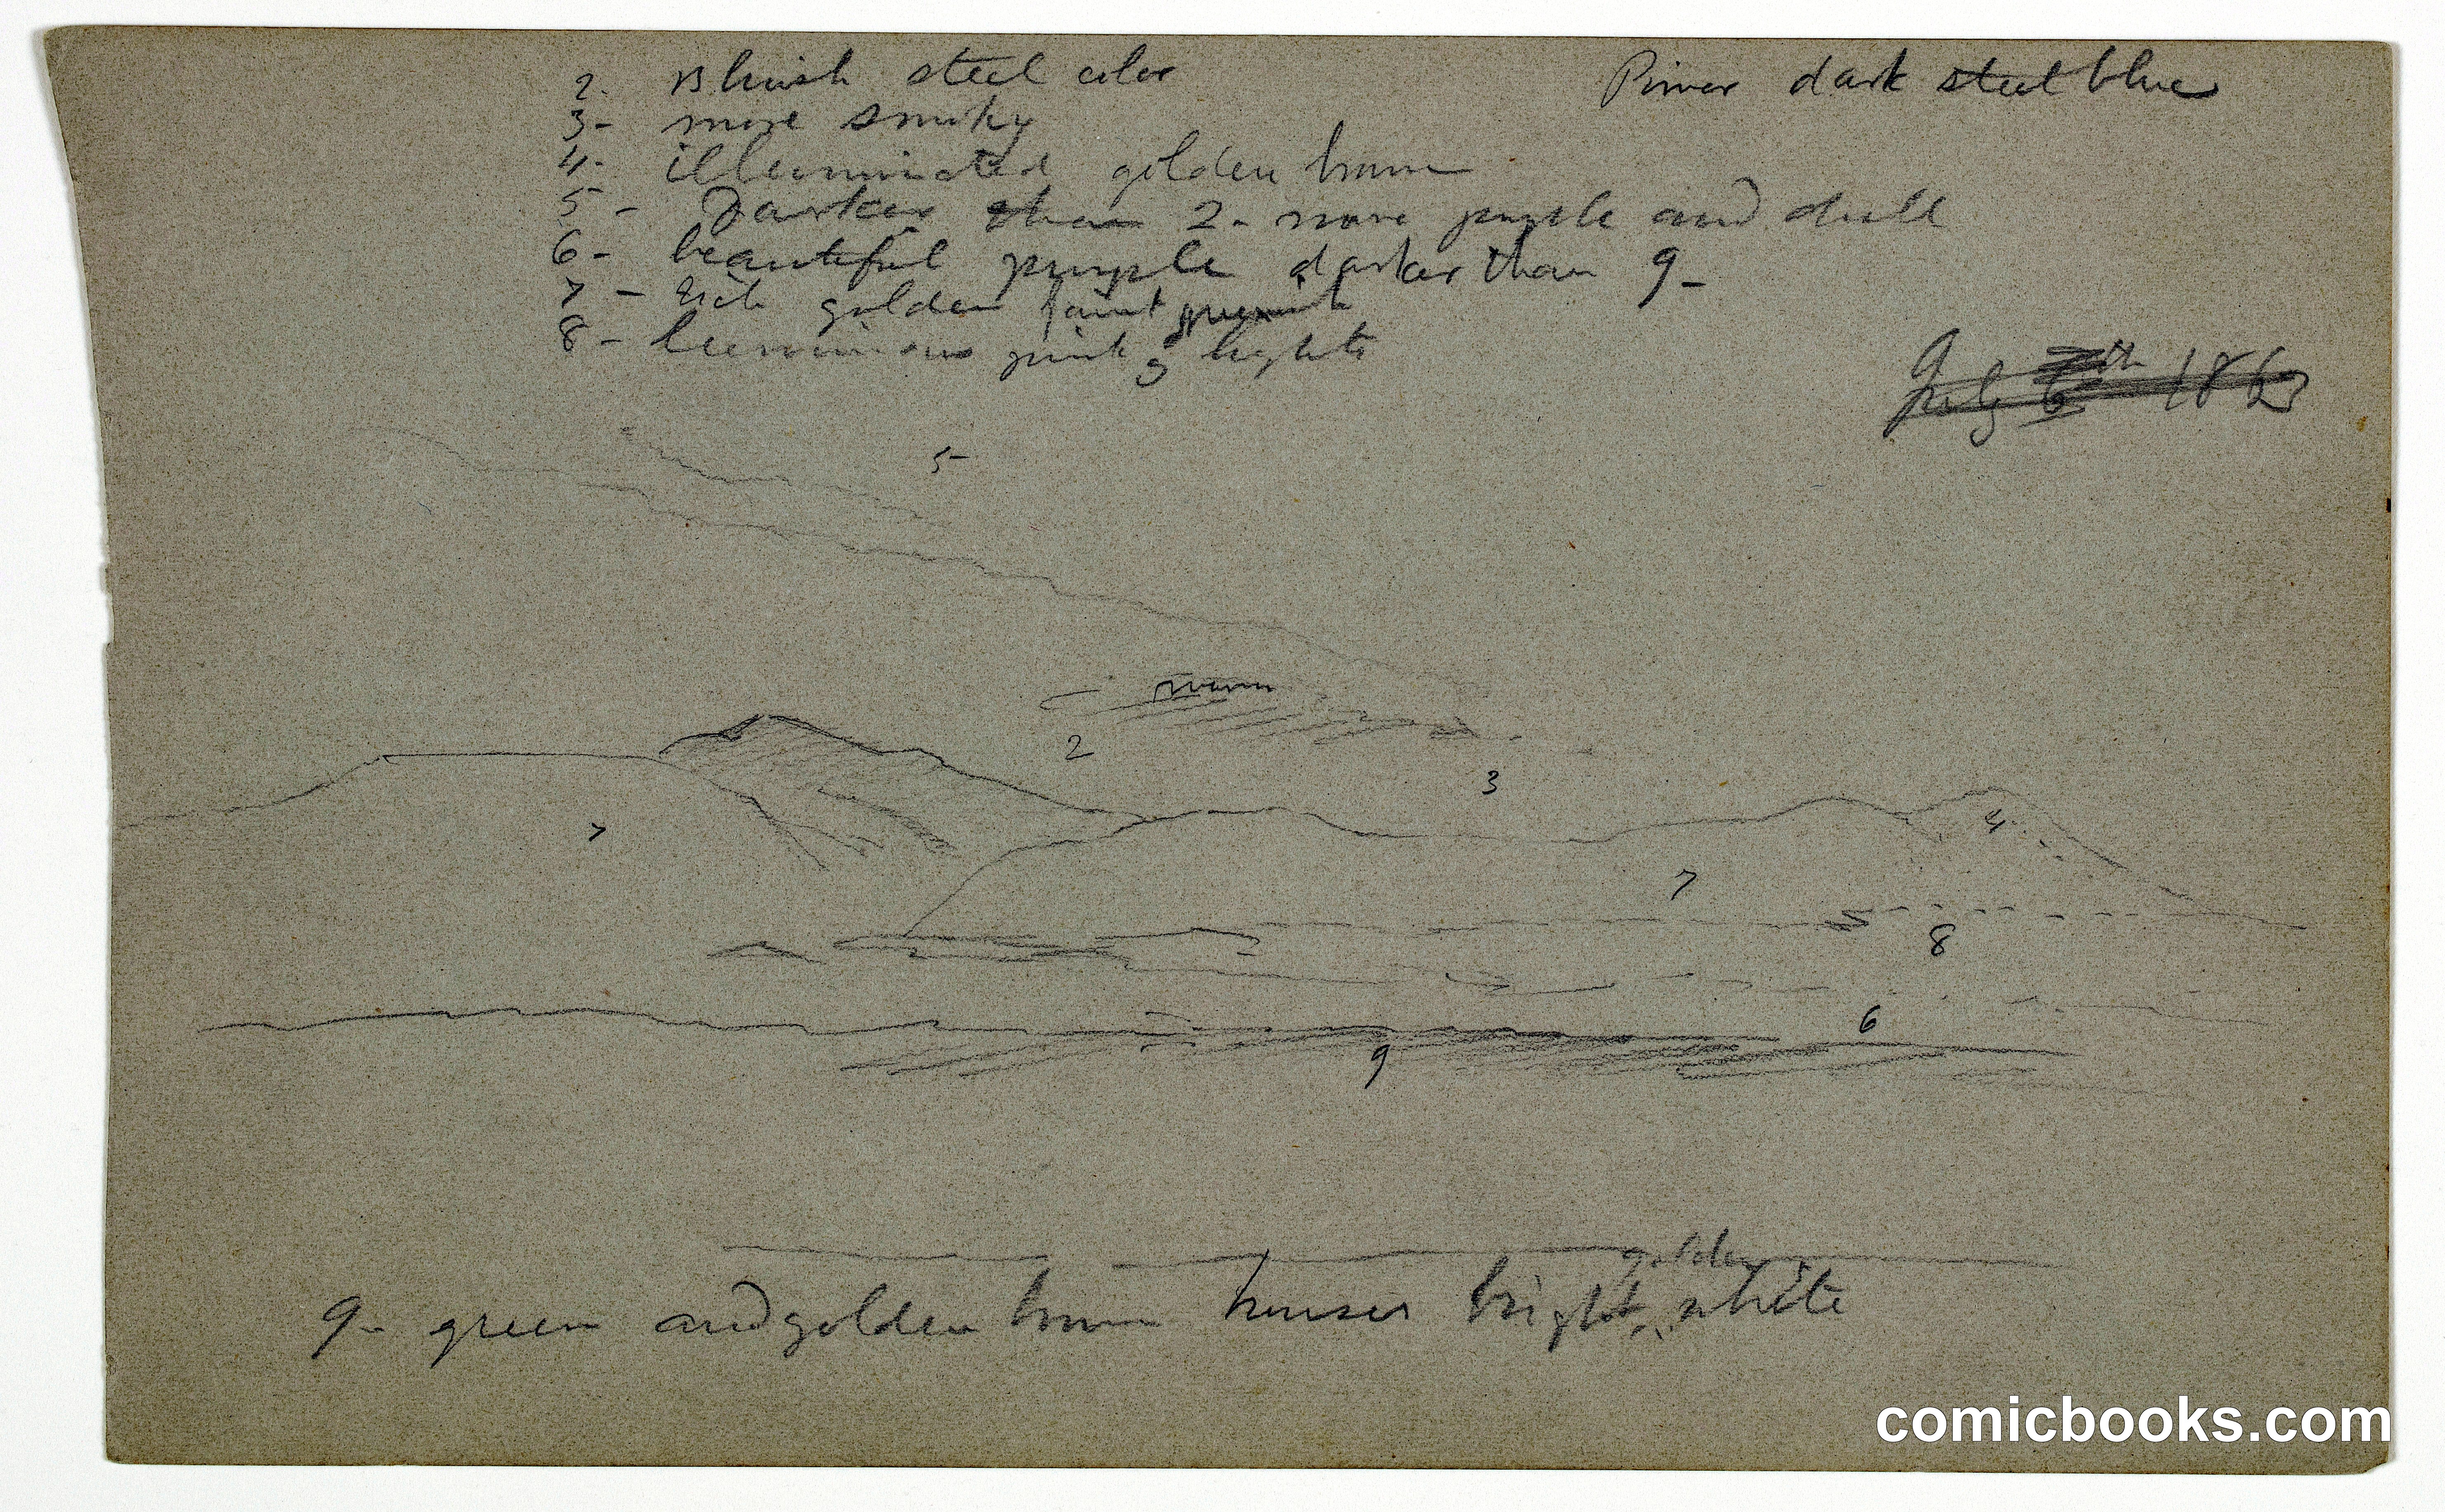 2. Bluish steel color
River dark steel blue
3- more smoky
4- illuminated golden brown
5- Darker than 2- more purple and dull
6- beautiful purple darker than 9-
7- rich golden faint greenish
8- luminous pink lights
July 6th 186
5-
warm
2
3
7
4
7
8
6
9
golden
9- green and golden brown houses bright white
comicbooks.com